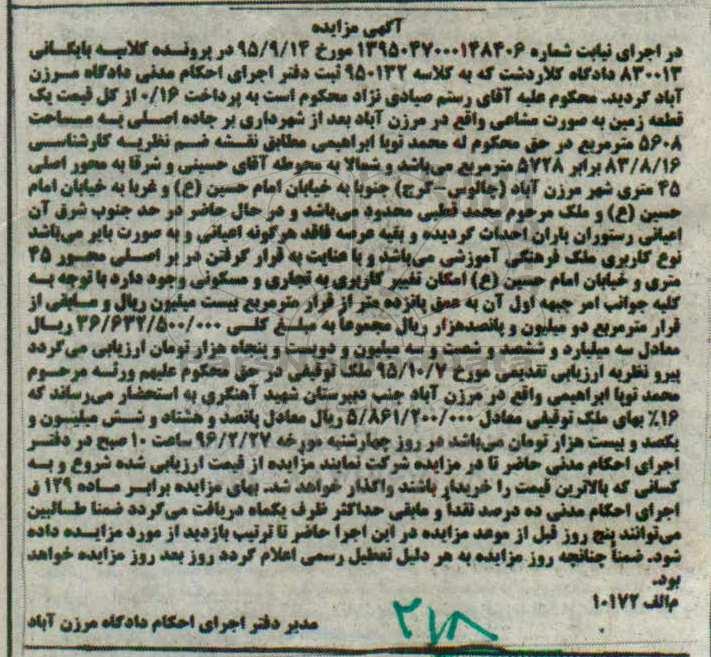 آگهی مزایده
در اجرای نیابت شماره ۱۳۹۵۰۴۷۰۰۰۱۴۸۴۰۶ مورخ ۹۵/۹/۱۴ در پرونده کلاسه بایگانی
۸۳۰۰۱۳ دادگاه کلاردشت که به کلاسه ۹۵۰۱۳۲ ثبت دفتر اجرای احکام مدنی دادگاه مرزن
آباد گردید. محکوم علیه آقای رستم صیادی نژاد محکوم است به پرداخت ۰/۱۶ از کل قیمت یک
قطعه زمین به صورت مشاعی واقع در مرزن آباد بعد از شهرداری بر جاده اصلی به مساحت
۵۶۰۸ مترمربع در حق محکوم له محمد توپا ابراهیمی مطابق نقشه ضم نظریه کارشناسی
۸۳/۸/۱۶ برابر ۵۷۲۸ مترمربع می‌باشد و شمالا به محوطه آقای حسینی و شرقا به محور اصلی
۴۵ متری شهر مرزن آباد (چالوس-کرج) جنوبا به خیابان امام حسین (ع) و غربا به خیابان امام
حسین (ع) و ملک مرحوم محمد قطبی محدود می‌باشد و در حال حاضر در حد جنوب شرق آن
اعیانی رستوران باران احداث گردیده و بقیه عرصه فاقد هرگونه اعیانی و به صورت بایر می‌باشد
نوع کاربری ملک فرهنگی آموزشی می‌باشد و با عنایت به قرار گرفتن در بر اصلی محور ۴۵
متری و خیابان امام حسین (ع) امکان تغییر کاربری به تجاری و مسکونی وجود دارد با توجه به
کلیه جوانب امر جبهه اول آن به عمق پانزده متر از قرار مترمربع بیست میلیون ریال و مابقی از
قرار مترمربع دو میلیون و پانصدهزار ریال مجموعا به مبلغ کلی ۳۶/۶۳۲/۵۰۰/۰۰۰ ریال
معادل سه میلیارد و ششصد و شصت و سه میلیون و دویست و پنجاه هزار تومان ارزیابی می‌گردد
پیرو نظریه ارزیابی تقدیمی مورخ ۹۵/۱۰/۷ ملک توقیفی در حق محکوم علیهم ورثه مرحوم
محمد توپا ابراهیمی واقع در مرزن آباد جنب دبیرستان شهید آهنگری به استحضار می‌رساند که
۱۶٪ بهای ملک توقیفی معادل ۵/۸۶۱/۲۰۰/۰۰۰ ریال معادل پانصد و هشتاد و شش میلیون و
یکصد و بیست هزار تومان می‌باشد در روز چهارشنبه مورخه ۹۶/۲/۲۷ ساعت ۱۰ صبح در دفتر
اجرای احکام مدنی حاضر تا در مزایده شرکت نمایند مزایده از قیمت ارزیابی شده شروع و به
کسانی که بالاترین قیمت را خریدار باشند واگذار خواهد شد. بهای مزایده برابر ماده ۱۲۹ ق
اجرای احکام مدنی ده درصد نقداً و مابقی حداکثر ظرف یکماه دریافت می‌گردد ضمنا طالبین
می‌توانند پنج روز قبل از موعد مزایده در این اجرا حاضر تا ترتیب بازدید از مورد مزایده داده
شود. ضمناً چنانچه روز مزایده به هر دلیل تعطیل رسمی اعلام گردد روز بعد روز مزایده خواهد
بود.
م‌الف ۱۰۱۷۲
مدیر دفتر اجرای احکام دادگاه مرزن آباد
۲/۸